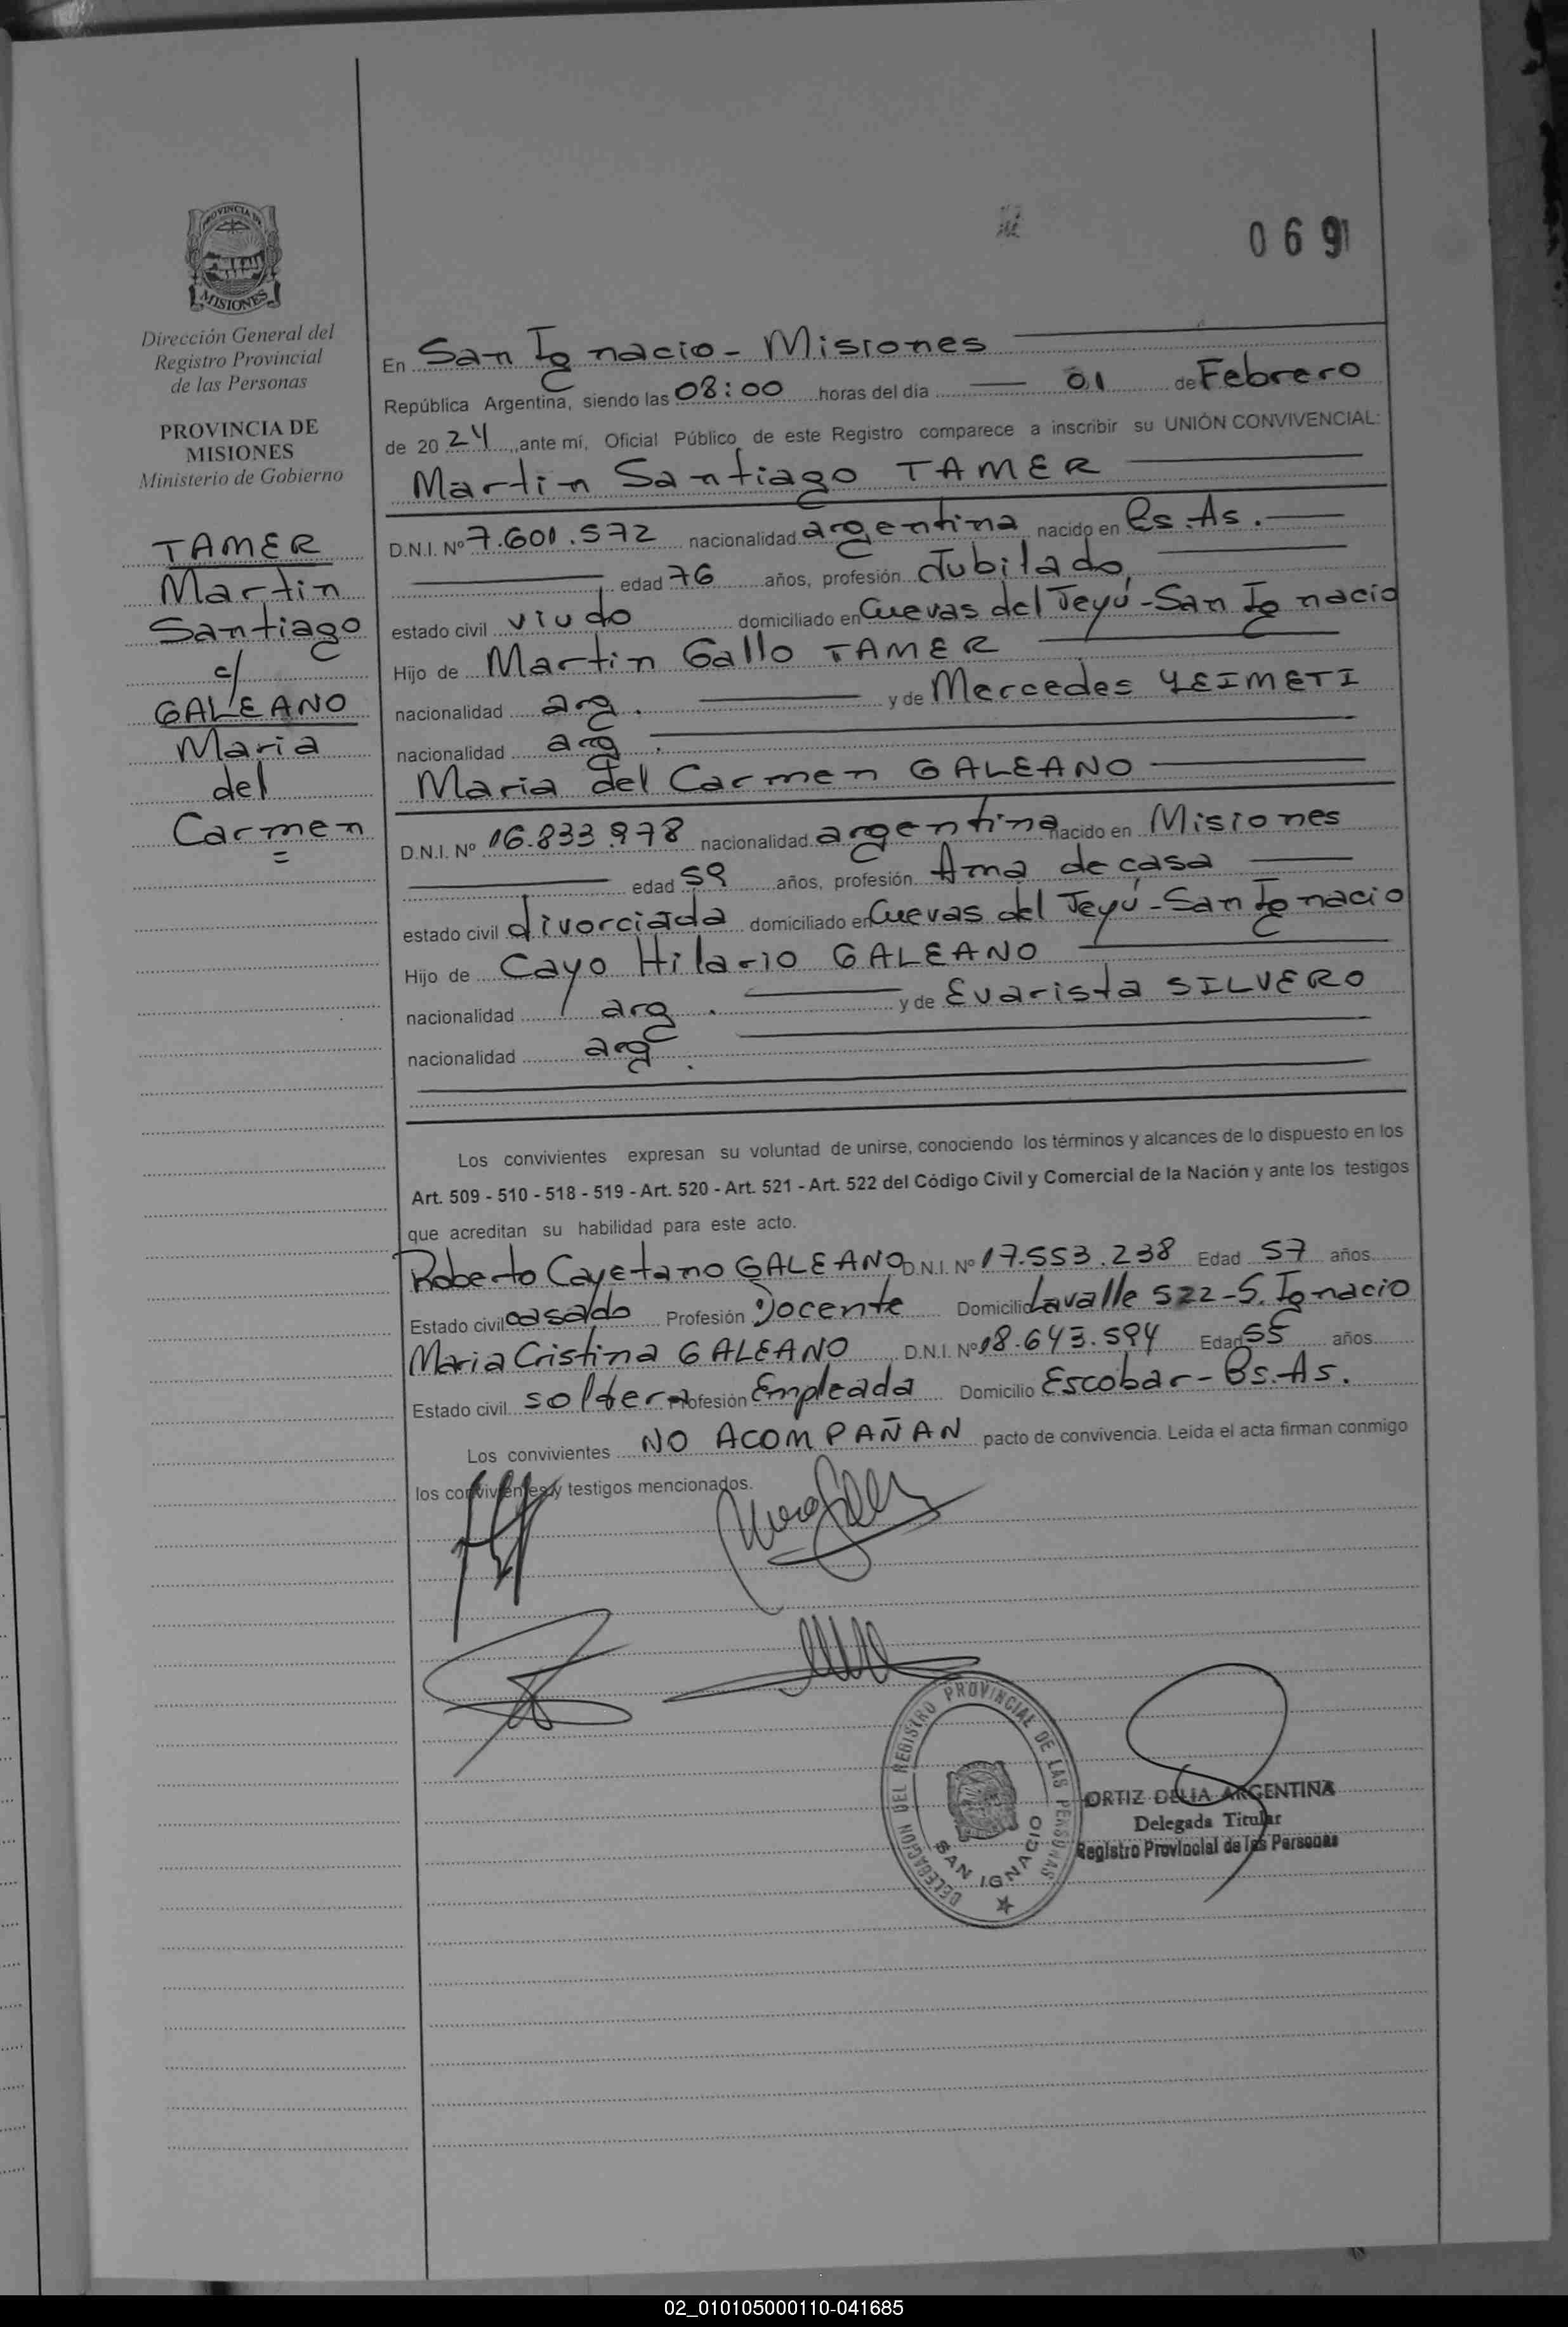 PROVINCIA DE
MISIONES
Dirección General del
Registro Provincial
de las Personas
PROVINCIA DE
MISIONES
Ministerio de Gobierno
TAMER
Martin
Santiago
c/
GALEANO
Maria
del
Carmen
=
069
En San Ignacio - Misiones
República Argentina, siendo las 08:00 horas del día 01 de Febrero
de 2024, ante mí, Oficial Público de este Registro comparece a inscribir su UNIÓN CONVIVENCIAL:
Martin Santiago TAMER
D.N.I. Nº 7.601.572 nacionalidad argentina nacido en Bs. As.
edad 76 años, profesión Jubilado,
estado civil viudo domiciliado en Cuevas del Teyú - San Ignacio
Hijo de Martin Gallo TAMER
nacionalidad arg. y de Mercedes YEIMETI
nacionalidad arg.
Maria del Carmen GALEANO
D.N.I. Nº 16.833.978 nacionalidad argentina nacido en Misiones
edad 59 años, profesión Ama de casa
estado civil divorciada domiciliado en Cuevas del Teyú - San Ignacio
Hijo de Cayo Hilario GALEANO
nacionalidad arg. y de Evarista SILVERO
nacionalidad arg.
Los convivientes expresan su voluntad de unirse, conociendo los términos y alcances de lo dispuesto en los
Art. 509 - 510 - 518 - 519 - Art. 520 - Art. 521 - Art. 522 del Código Civil y Comercial de la Nación y ante los testigos
que acreditan su habilidad para este acto.
Roberto Cayetano GALEANO D.N.I. Nº 17.553.238 Edad 57 años
Estado civil casado Profesión Docente Domicilio Lavalle 522 - S. Ignacio
Maria Cristina GALEANO D.N.I. Nº 18.643.594 Edad 55 años
Estado civil soltera Profesión Empleada Domicilio Escobar - Bs. As.
Los convivientes NO ACOMPAÑAN pacto de convivencia. Leida el acta firman conmigo
los convivientes y testigos mencionados.
DELEGACION DEL REGISTRO PROVINCIAL DE LAS PERSONAS
SAN IGNACIO
ORTIZ DELIA ARGENTINA
Delegada Titular
Registro Provincial de las Personas
02_010105000110-041685